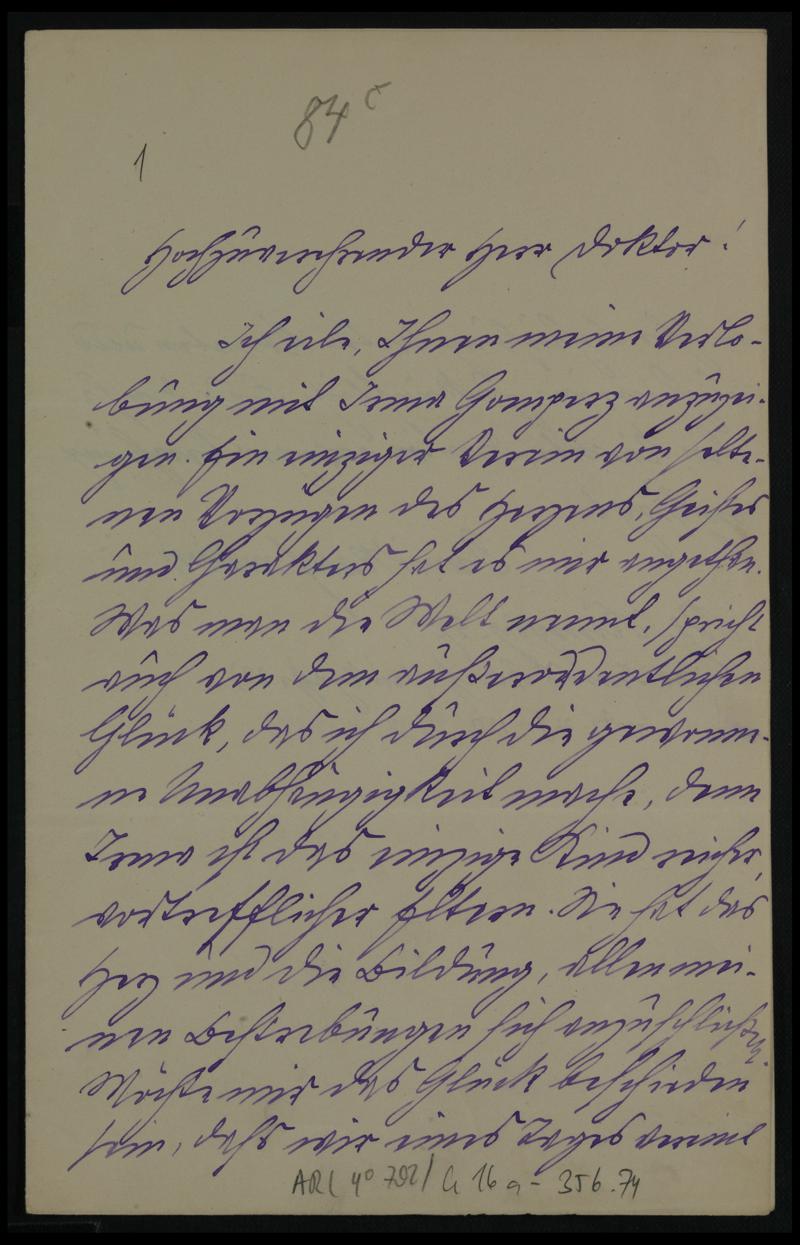 84 c
1
Hochzuverehrender Herr Doktor!
Ich eile, Ihnen meine Verlo-
bung mit Irma Gomperz anzuzei-
gen. Ein einziger Verein von selte-
nen Vorzügen des Herzens, Geistes
und Charakters hat es mir angethan.
Was man die Welt nennt, spricht
auch von dem außerordentlichen
Glück, das ich durch die gewonne-
ne Unabhängigkeit mache, denn
Irma ist das einzige Kind reicher,
vortrefflicher Eltern. Sie hat das
Herz und die Bildung, allen mei-
nen Bestrebungen sich anzuschließen.
Möchte mir das Glück beschieden
sein, daß wir eines Tages vereint
ARC 4° 792/ G 16 a - 356.74